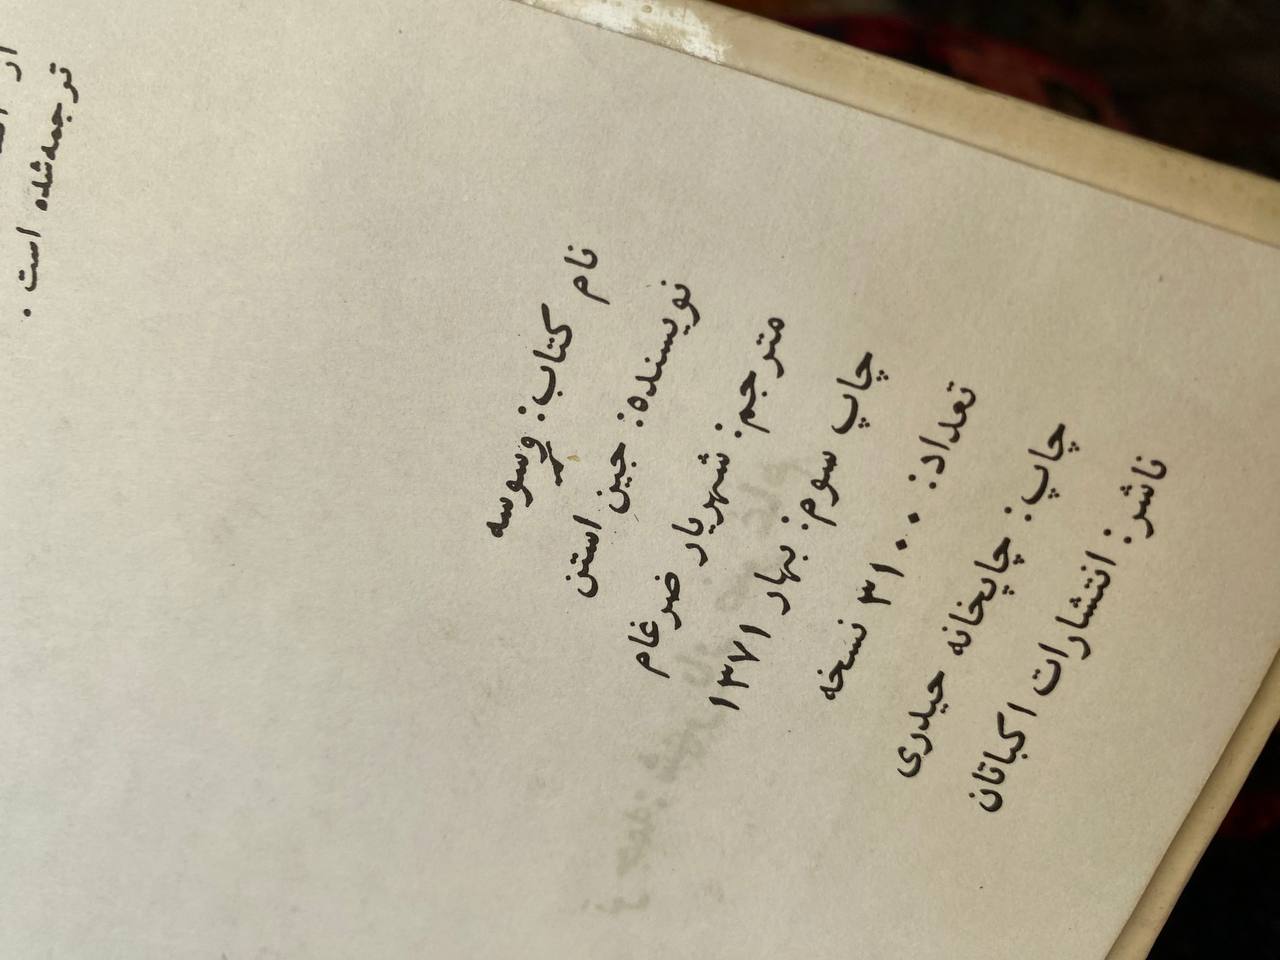 ترجمه‌شده است.
نام کتاب: وسوسه
نویسنده: جین استن
مترجم: شهریار ضرغام
چاپ سوم: بهار ۱۳۷۱
تعداد: ۳۱۰۰ نسخه
چاپ: چاپخانه حیدری
ناشر: انتشارات اکباتان